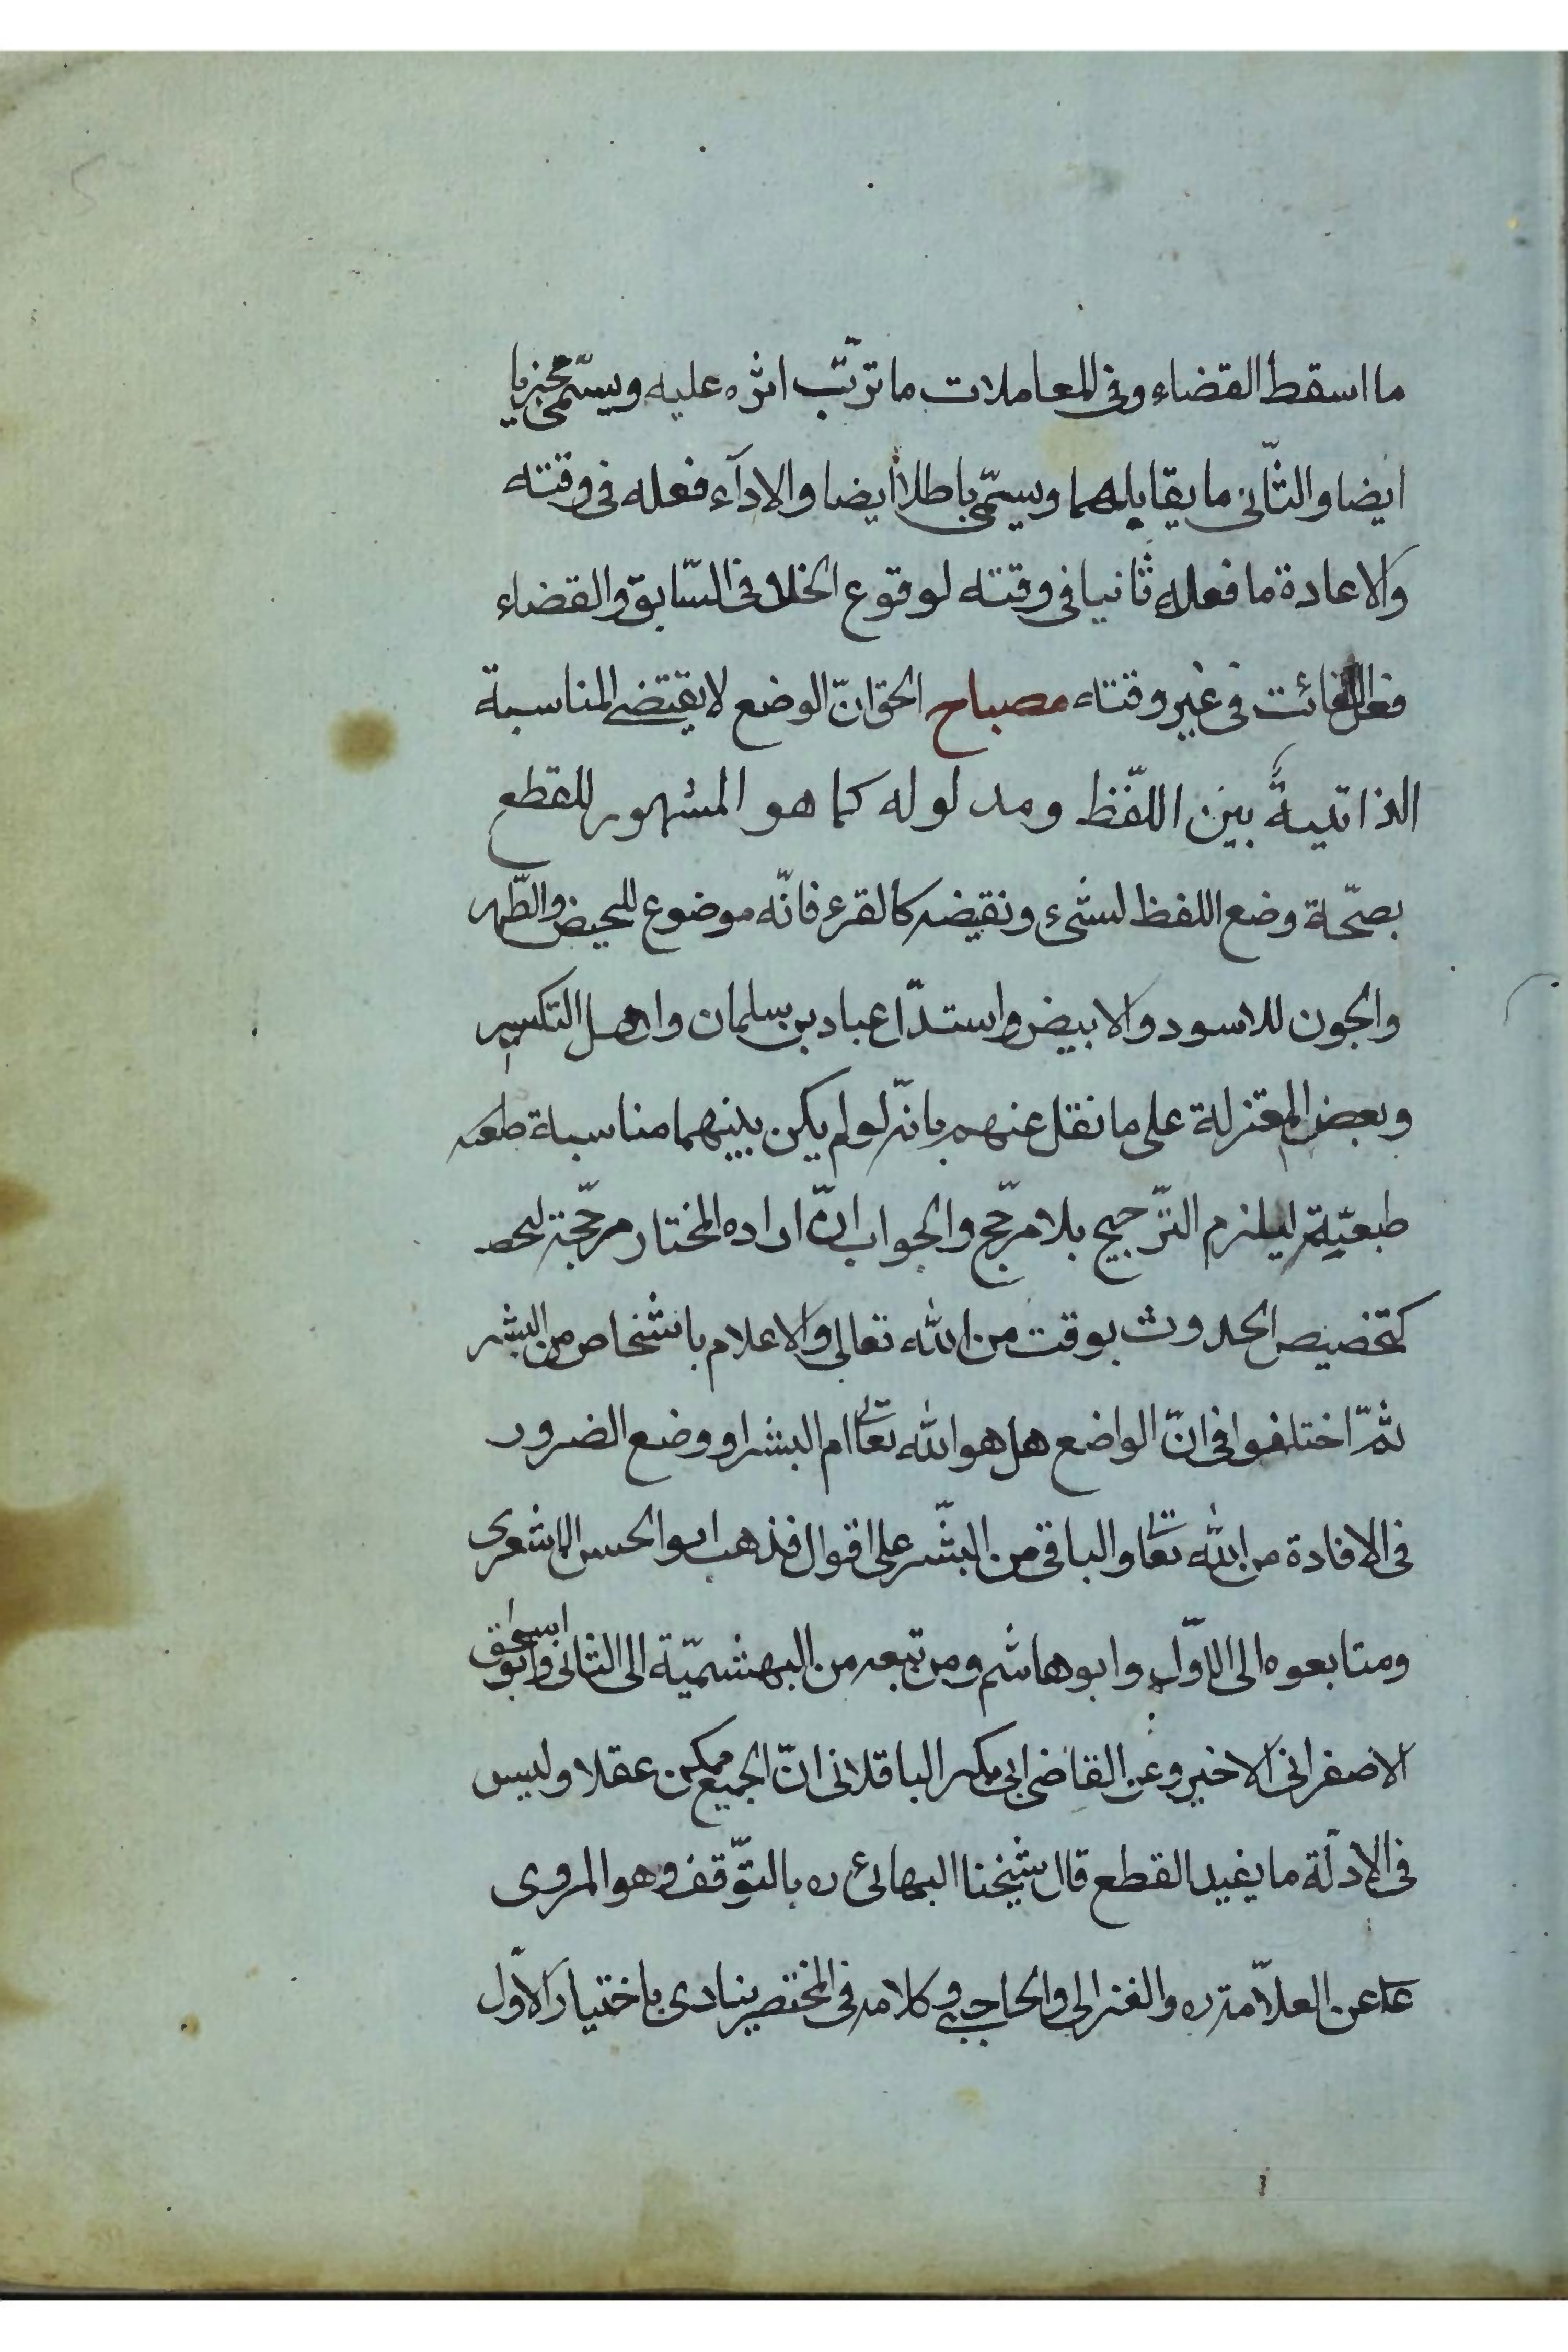 ما اسقط القضاء وفى المعاملات ما ترتّب اثره عليه ويسمّى مجزيا
ايضا والثّانى ما يقابلهما ويسمّى باطلا ايضا والاداۤء فعله فى وقته
والاعادة ما فعله ثانيا فى وقته لوقوع الخلل فى السّابق والقضاء
فعل الفائت فى غير وقته مصباح الحق انّ الوضع لا يقتضى المناسبة
الذاتية بين اللّفظ ومدلوله كما هو المشهور للقطع
بصحّة وضع اللفظ لشىء ونقيضه كالقرء فانّه موضوع للحيض والطّهر
والجون للاسود والابيض واستدّل عباد بن سلمان واهل التكسير
وبعض المعتزلة على ما نقل عنهم بانّه لو لم يكن بينهما مناسبة
طبعيّة ليلزم التّرجيح بلا مرجّح والجواب انّ اراده المختار مرجّحة
كتخصيص الحدوث بوقت من الله تعالى والاعلام باشخاص من البشر
ثمّ اختلفوا فى انّ الواضع هل هو الله تعا ام البشر او وضع الضرور
فى الافادة من الله تعا والباقى من البشّر على اقوال فذهب ابو الحسن الاشعرى
ومتابعوه الى الاوّل وابو هاشم ومن تبعه من البهشميّة الى الثانى وابو اسحق
الاصفرانى الاخير وعن القاضى ابى بكر الباقلانى انّ الجميع ممكن عقلا وليس
فى الادلّة ما يفيد القطع قال شيخنا البهائى ره بالتوّقف وهو المروى
عن العلاّمة ره والغزالى والحاجبى وكلامه فى المختصر ينادى باختيار الاوّل